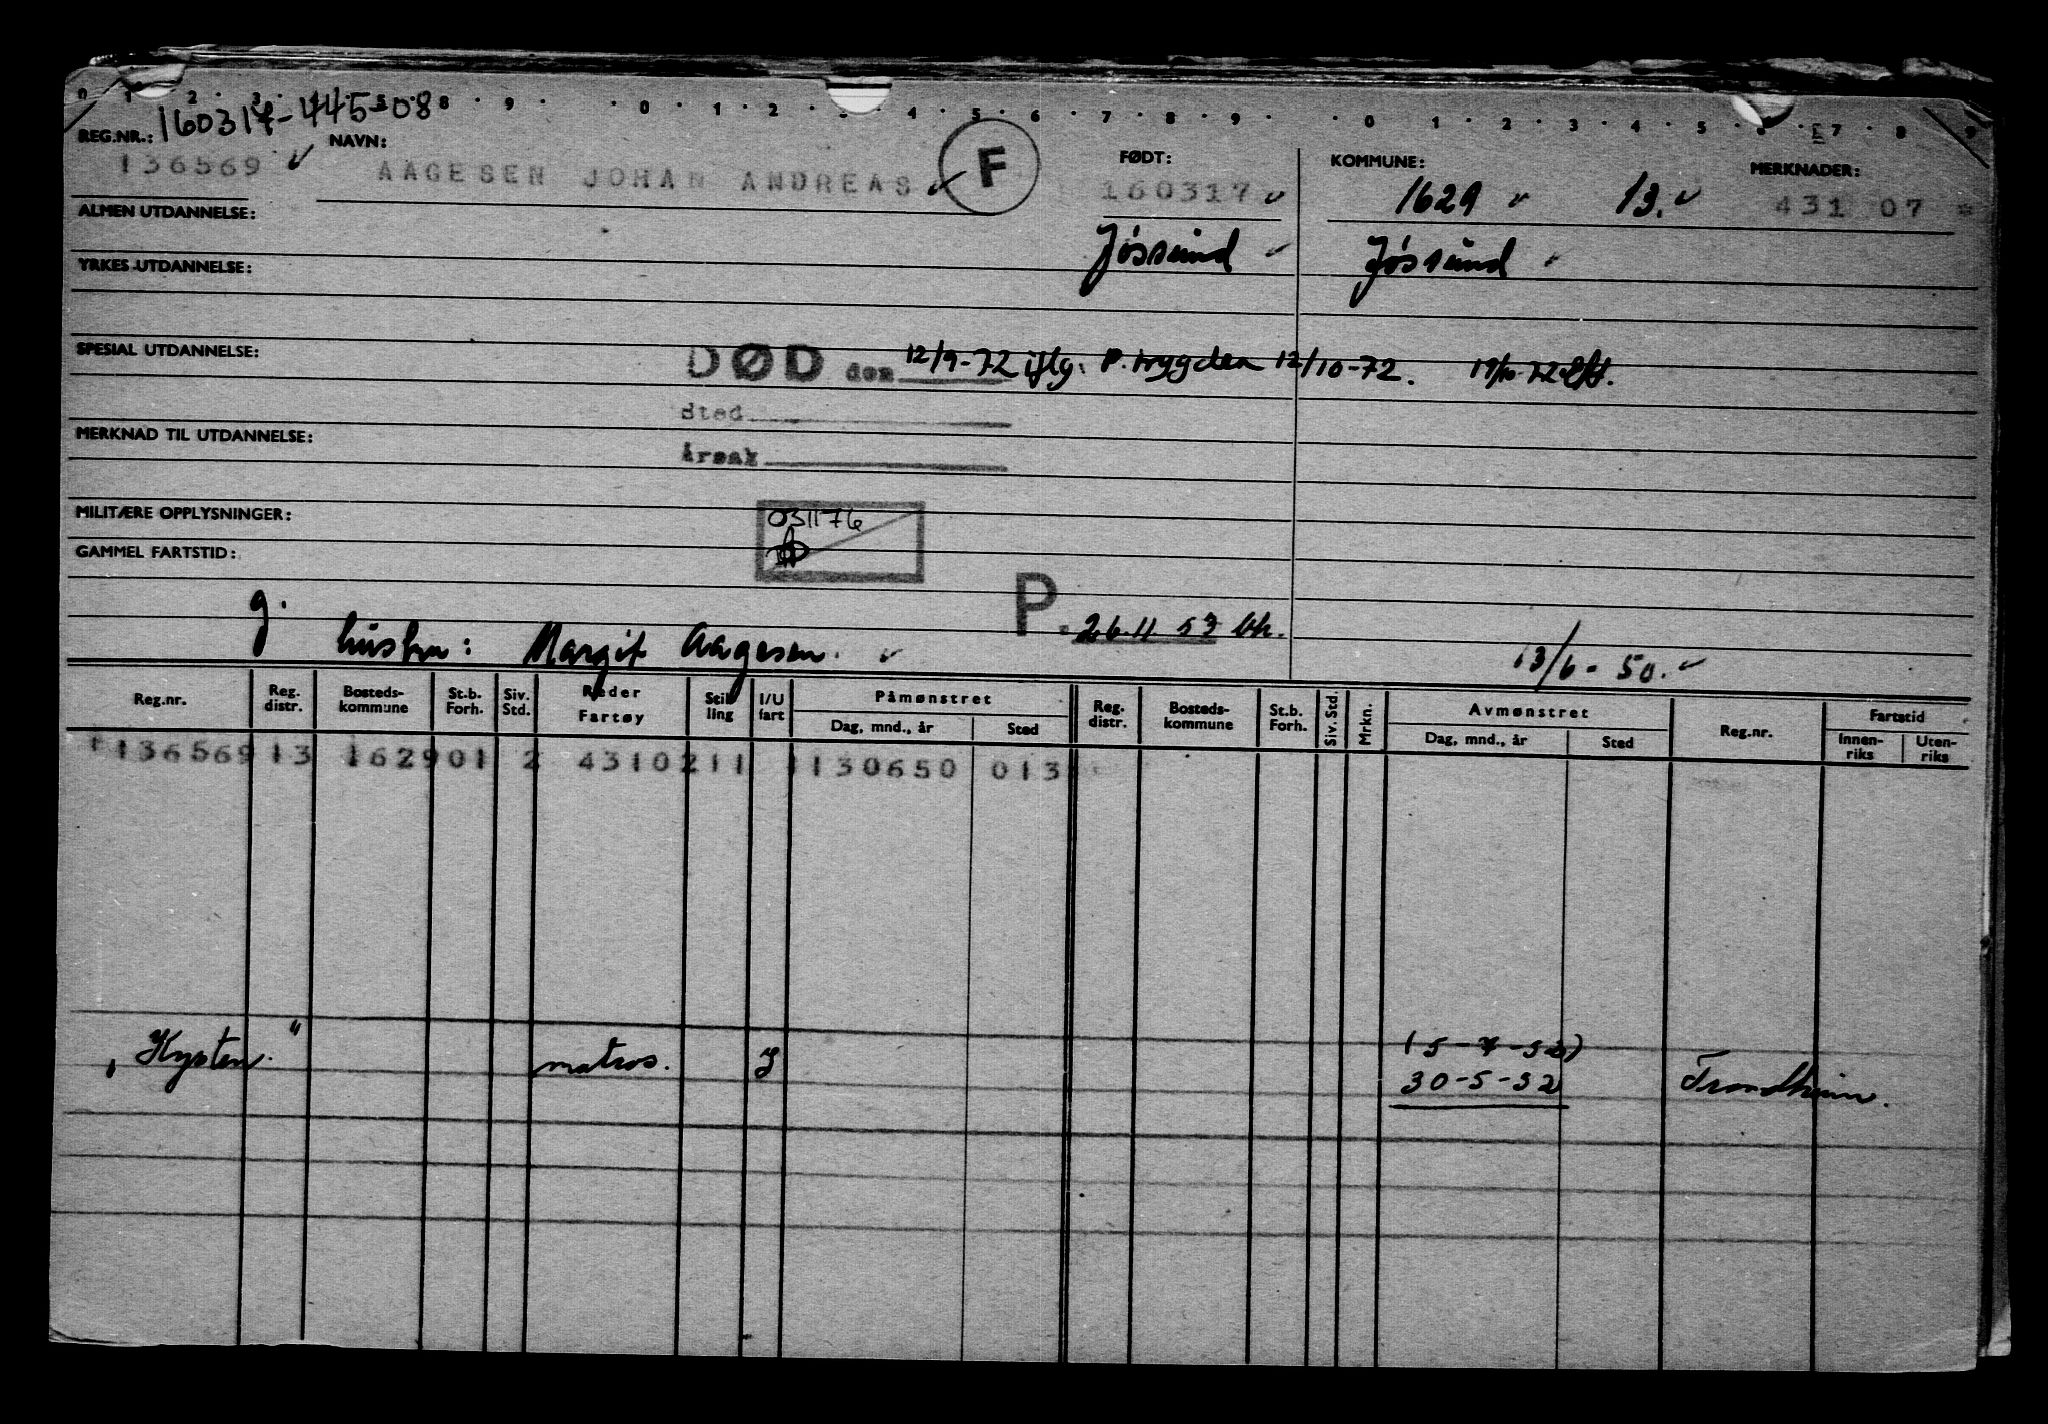 0 1 2 3 5 8 9 0 1 2 3 4 5 6 7 8 9 0 1 2 3 4 5 6 7 8 9
REG.NR.: 160317-445-08 NAVN: FØDT: KOMMUNE: MERKNADER:
136569 AAGESEN JOHAN ANDREAS F 160317 1629 13. 431 07
ALMEN UTDANNELSE: Jøssund Jøssund
YRKES-UTDANNELSE:
SPESIAL UTDANNELSE: DØD den 12/9-72 iflg. P.trygden 12/10-72.
Sted
MERKNAD TIL UTDANNELSE:
Årsak
MILITÆRE OPPLYSNINGER: 031176
GAMMEL FARTSTID:
g. P. 26.11.53
hustru: Margit Aagesen. 13/6-50.
Reg.nr. Reg. distr. Bosteds-kommune St.b. Forh. Siv. Std. Reder Fartøy Stil ling I/U fart Påmønstret Dag, mnd., år Sted Reg. distr. Bosteds-kommune St.b. Forh. Siv. Std. Mrkn. Avmønstret Dag, mnd., år Sted Reg.nr. Fartstid Innen-riks Uten-riks
136569 13 1629 01 2 4310211 1 130650 013
"Kysten." matros. J (5-7-52)
30-5-52 Trondheim.